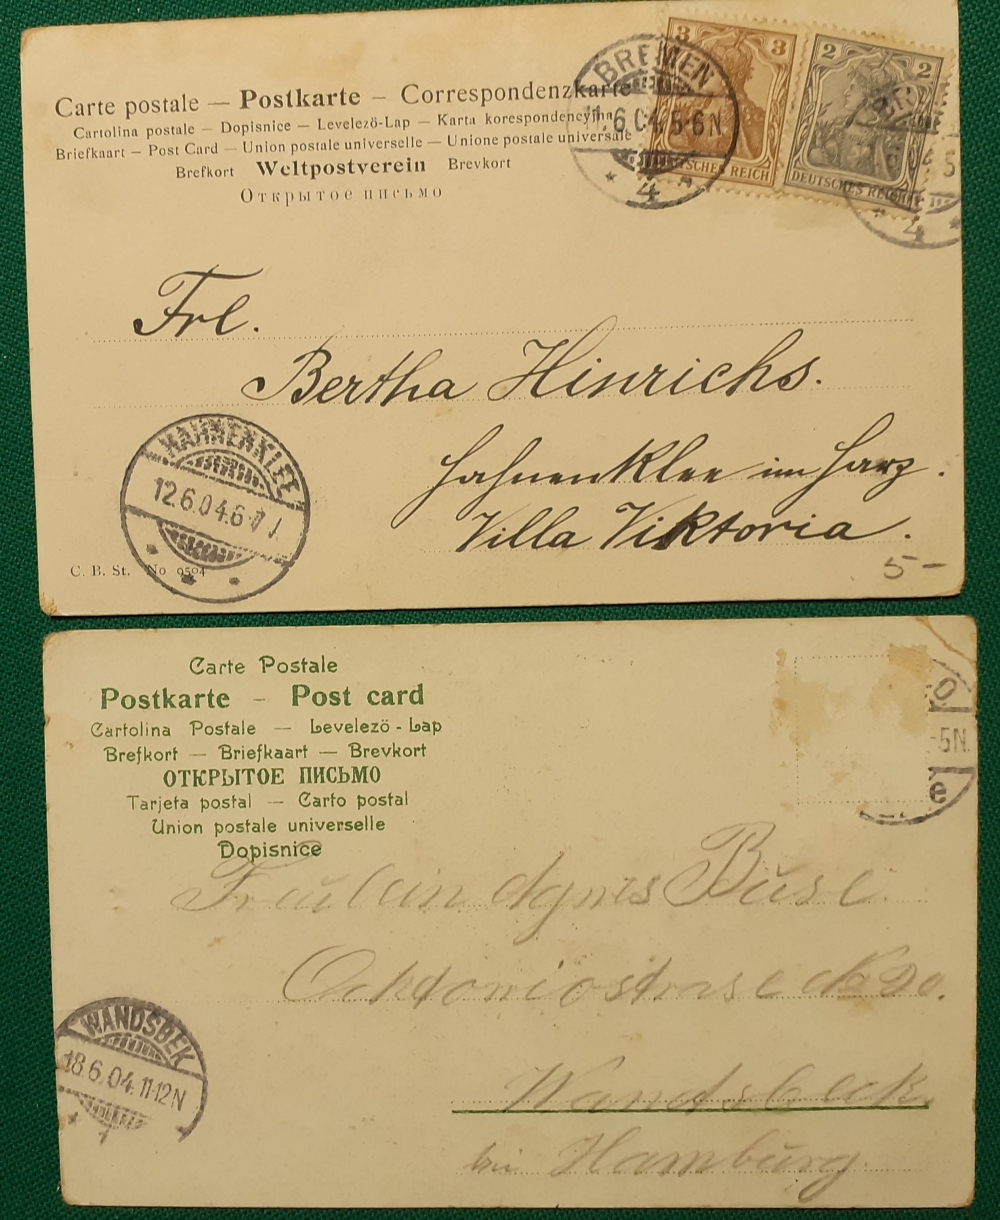 Carte postale — Postkarte — Correspondenzkarte
Cartolina postale – Dopisnice – Levelező-Lap – Karta korespondencyjna
Briefkaart – Post Card – Union postale universelle – Unione postale universale
Brefkort Weltpostverein Brevkort
Открытое письмо
BREMEN
11.6.04.5-6N
4
3 3
DEUTSCHES REICH
2 2
DEUTSCHES REICH
4
Frl.
Bertha Hinrichs.
Hahnenklee im Harz.
Villa Viktoria.
HAHNENKLEE
12.6.04.6-7
C. B. St. No 9594
5–
Carte Postale
Postkarte – Post card
Cartolina Postale — Levelező - Lap
Brefkort — Briefkaart — Brevkort
ОТКРЫТОЕ ПИСЬМО
Tarjeta postal — Carto postal
Union postale universelle
Dopisnice
-5N.
e
Fräulein Agnes Büse.
No 20.
Wandsbeck
bei Hamburg.
WANDSBEK
18.6.04. 11-12N
1